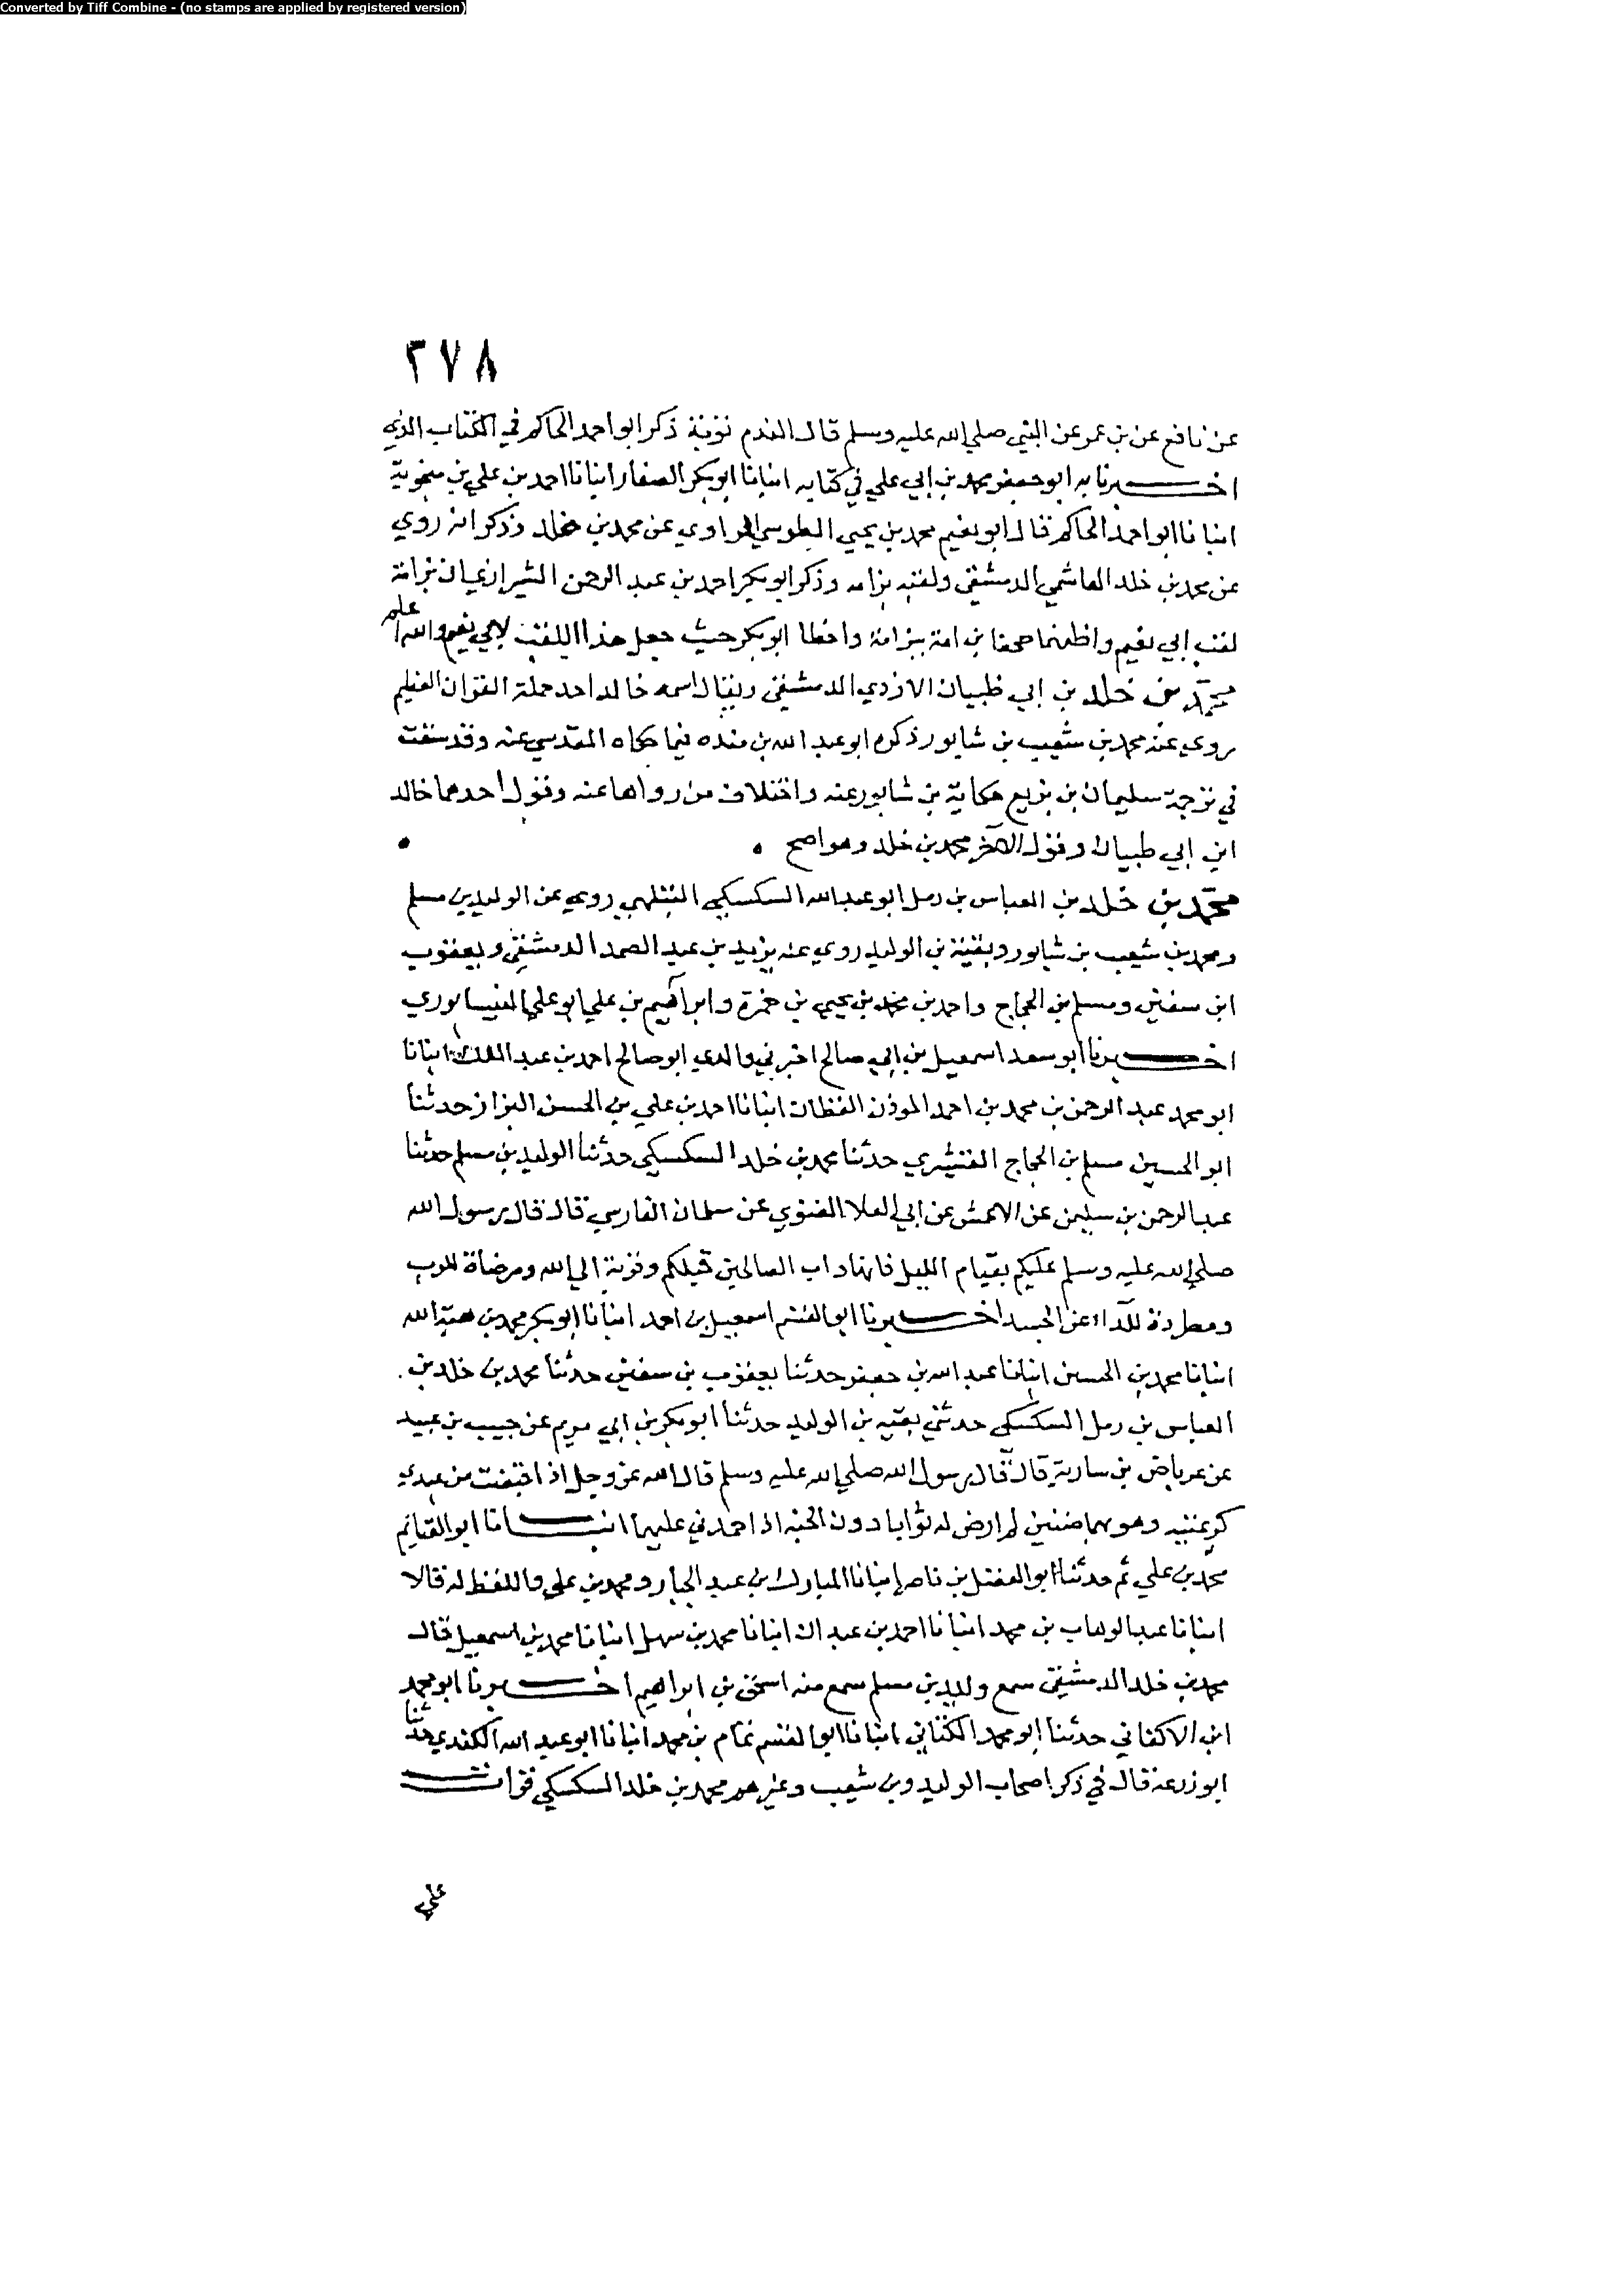 Converted by Tiff Combine - (no stamps are applied by registered version)
٢٧٨
عن نافع عن بن عمر عن النبي صلي الله عليه وسلم قال الندم توبة ذكر ابو احمد الحاكم في الكتاب الذي
اخبرنا به ابو جعفر محمد بن ابي علي في كتابه انبانا ابو بكر الصفار انبانا احمد بن علي بن منجوية
انبانا ابو احمد الحاكم قال ابو نعيم محمد بن يحيي الطوسي عن محمد بن خالد وذكر انه روي
عن محمد بن خلد الهاشمي الدمشقي ولقبه بزامه وذكر ابو بكر احمد بن عبد الرحمن الشيرازي ان بزامة
لقب ابي نعيم واظنهما صحفا بن امة ببزامة واخطا ابو بكر حيث جعل هذا اللقب لابي نعيم والله اعلم
محمد بن خلد بن ابي ظبيان الازدي الدمشقي ويقال اسمه خالد احد حملة القران العظيم
روي عنه محمد بن شعيب بن شابور ذكره ابو عبد الله بن منده فيما حكاه المقدسي عنه وقد سقت
في ترجمة سليمان بن بزيع حكاية بن شابور عنه واختلاف من رواها عنه وقول احدهما خالد
ابن ابي ظبيان وقول الاخر محمد بن خلد وهو اصح
محمد بن خلد بن العباس بن رمل ابو عبد الله السكسكي البتلهي روي عن الوليد بن مسلم
ومحمد بن شعيب بن شابور وبقية بن الوليد روي عنه يزيد بن عبد الصمد الدمشقي ويعقوب
ابن سفين ومسلم بن الحجاج واحمد بن محمد بن يحيي بن حمزة وابراهيم بن علي ابو علي النيسابوري
اخبرنا ابو سعد اسمعيل بن ابي صالح اخبرني والدي ابو صالح احمد بن عبد الملك انبانا
ابو محمد عبد الرحمن بن محمد بن احمد الموذن القطان انبانا احمد بن علي بن الحسن البزاز حدثنا
ابو الحسين مسلم بن الحجاج القشيري حدثنا محمد بن خلد السكسكي حدثنا الوليد بن مسلم حدثنا
عبد الرحمن بن سليمن عن الاعمش عن ابي العلا الغنوي عن سلمان الفارسي قال قال رسول الله
صلي الله عليه وسلم عليكم بقيام الليل فانها داب الصالحين قبلكم وقربة الي الله ومرضاة للرب
ومطردة للداء عن الجسد اخبرنا ابو القسم اسمعيل بن احمد انبانا ابو بكر محمد بن هبة الله
انبانا محمد بن الحسين انبانا عبد الله بن جعفر حدثنا يعقوب بن سفين حدثنا محمد بن خلد بن
العباس بن رمل السكسكي حدثني بقيه بن الوليد حدثنا ابو بكر بن ابي مريم عن حبيب بن عبيد
عن عرباض بن سارية قال قال رسول الله صلي الله عليه وسلم قال الله عز وجل اذا اخذت من عبدي
كريمتيه وهو بهما ضنين لم ارض له ثوابا دون الجنه اذا حمدني عليهما انبانا ابو الغنايم
محمد بن علي ثم حدثنا ابو الفضل بن ناصر انبانا المبارك بن عبد الجبار ومحمد بن علي واللفظ له قالا
انبانا عبد الوهاب بن محمد انبانا احمد بن عبدان انبانا محمد بن سهل انبانا محمد بن اسمعيل قال
محمد بن خلد الدمشقي سمع وليد بن مسلم سمع منه اسحق بن ابراهيم اخبرنا ابو محمد
ابن الاكفاني حدثنا ابو محمد الكتاني انبانا ابو القسم تمام بن محمد انبانا ابو عبد الله الكندي حدثنا
ابو زرعة قال في ذكر اصحاب الوليد وبن شعيب وغيرهم محمد بن خلد السكسكي قرات
علي